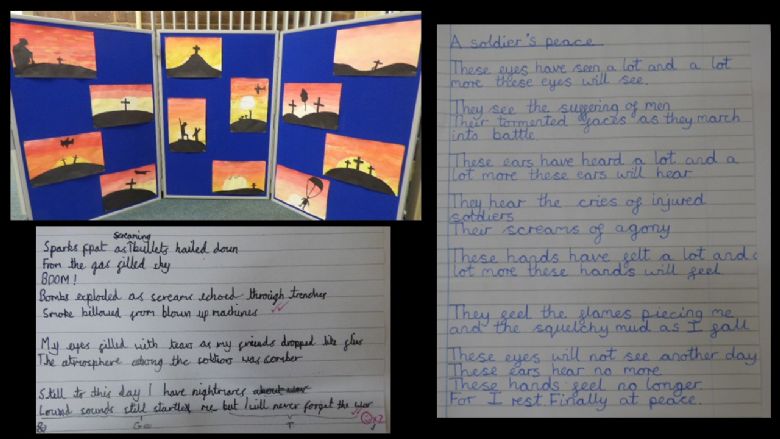 screaming
Sparks spat as bullets hailed down
From the gas filled sky
BOOM!
Bombs exploded as screams echoed through trenches
Smoke billowed from blown up machines
My eyes filled with tears as my friends dropped like flies
The atmosphere among the soldiers was somber
Still to this day I have nightmares about war
Lound sounds still startles me but I will never forget the war
A soldier's peace
These eyes have seen a lot and a lot
more these eyes will see.
They see the suffering of men
Their tormented faces as they march
into battle
These ears have heard a lot and a
lot more these ears will hear
They hear the cries of injured
soldiers
Their screams of agony
These hands have felt a lot and a
lot more these hands will feel
They feel the flames piecing me
and the squelchy mud as I fall
These eyes will not see another day
These ears hear no more
These hands feel no longer.
For I rest Finally at peace.